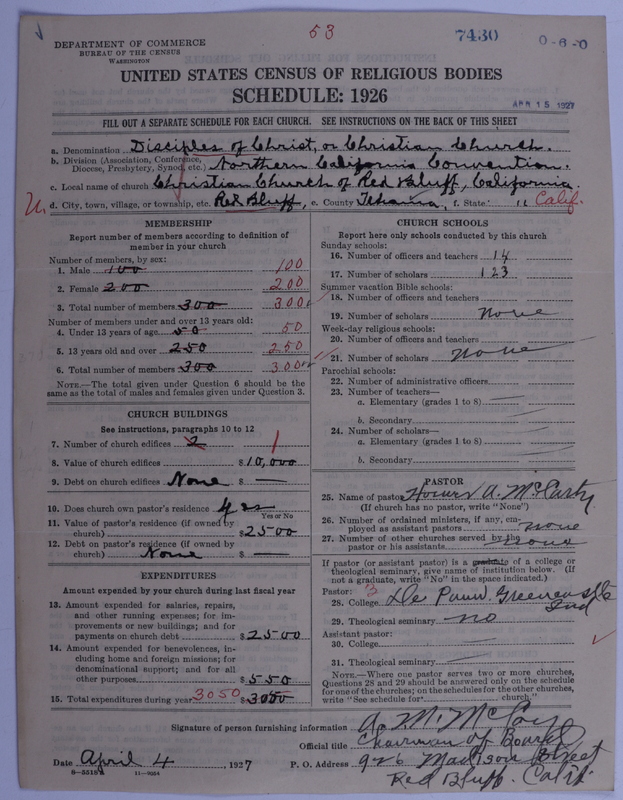 53
7430
0-6-0
DEPARTMENT OF COMMERCE
BUREAU OF THE CENSUS
WASHINGTON
UNITED STATES CENSUS OF RELIGIOUS BODIES
SCHEDULE: 1926
APR 15 1927
FILL OUT A SEPARATE SCHEDULE FOR EACH CHURCH. SEE INSTRUCTIONS ON THE BACK OF THIS SHEET
a. Denomination Disciples of Christ, or Christian Church.
b. Division (Association, Conference, Diocese, Presbytery, Synod, etc.) Northern California Convention.
c. Local name of church Christian Church of Red Bluff, California.
d. City, town, village, or township, etc. Red Bluff, e. County Tehama, f. State " Calif.
MEMBERSHIP
Report number of members according to definition of
member in your church
Number of members, by sex:
1. Male 100 100
2. Female 200 200
3. Total number of members 300 300
Number of members under and over 13 years old:
4. Under 13 years of age 50 50
5. 13 years old and over 250 250
6. Total number of members 300 300
NOTE.—The total given under Question 6 should be the
same as the total of males and females given under Question 3.
CHURCH BUILDINGS
See instructions, paragraphs 10 to 12
7. Number of church edifices 2 1
8. Value of church edifices $10,000
9. Debt on church edifices None $ —
10. Does church own pastor's residence yes
Yes or No
11. Value of pastor's residence (if owned by
church) $2500
12. Debt on pastor's residence (if owned by
church) None $ —
EXPENDITURES
Amount expended by your church during last fiscal year
13. Amount expended for salaries, repairs,
and other running expenses; for im-
provements or new buildings; and for
payments on church debt $2500
14. Amount expended for benevolences, in-
cluding home and foreign missions; for
denominational support; and for all
other purposes $550
15. Total expenditures during year 3050 $3055
CHURCH SCHOOLS
Report here only schools conducted by this church
Sunday schools:
16. Number of officers and teachers 14
17. Number of scholars 123
Summer vacation Bible schools:
18. Number of officers and teachers
19. Number of scholars none
Week-day religious schools:
20. Number of officers and teachers
21. Number of scholars none
Parochial schools:
22. Number of administrative officers
23. Number of teachers—
a. Elementary (grades 1 to 8)
b. Secondary
24. Number of scholars—
a. Elementary (grades 1 to 8)
b. Secondary
PASTOR
25. Name of pastor A.
(If church has no pastor, write "None")
26. Number of ordained ministers, if any, em-
ployed as assistant pastors none
27. Number of other churches served by the
pastor or his assistants none
If pastor (or assistant pastor) is a graduate of a college or
theological seminary, give name of institution below. (If
not a graduate, write "No" in the space indicated.)
Pastor: 3
28. College De Pauw Greencastle
Ind
29. Theological seminary no
Assistant pastor:
30. College
31. Theological seminary
NOTE.—Where one pastor serves two or more churches,
Questions 28 and 29 should be answered only on the schedule
for one of the churches; on the schedules for the other churches,
write "See schedule for church."
Signature of person furnishing information A. M. McCoy
Official title Chairman of Board
Date April 4 1927 P. O. Address 926 Madison Street
8-5518a 11-9064 Red Bluff. Calif.